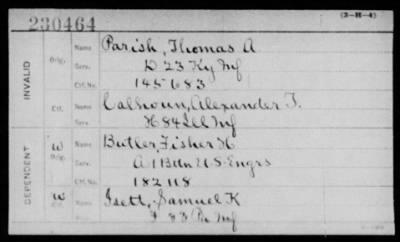 230464 (3-H-4)
INVALID
Orig. Name Parish, Thomas A
Serv. D 23 Ky Inf
Ctf. No. 145683
Ctf. Name Calhoun, Alexander T.
Serv. H 84 Ill Inf
DEPENDENT
W Orig. Name Butler, Fisher H
Serv. A 1 Batn U S Engrs
Ctf. No. 182118
W Ctf. Name Isett, Samuel K
83 Pa Inf